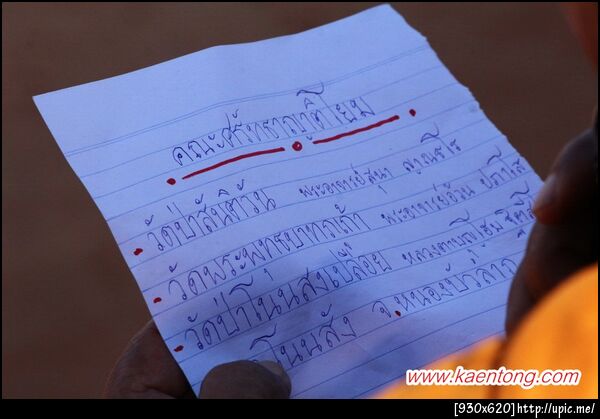 คณะศรัทธาญาติโยม
วัดป่าสันติวัน พระอาจารย์สุนา
วัดพระพุทธบาทภูเก้า พระอาจารย์อ้วน
วัดป่าโนนสงเปลือย หลวงตาบุญ
โนนสัง จ.หนองบัวลำภู
www.kaentong.com
[930x620]http://upic.me/